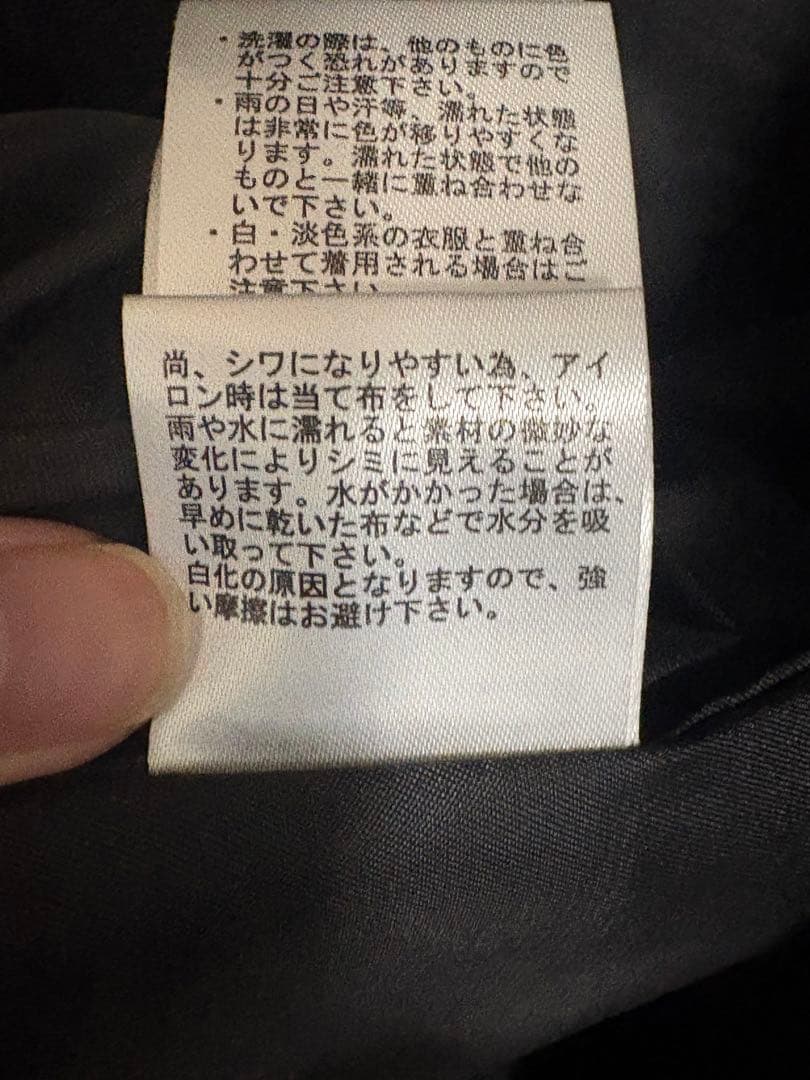 ・洗濯の際は、他のものに色
がつく恐れがありますので
十分ご注意下さい。
・雨の日や汗等、濡れた状態
は非常に色が移りやすくな
ります。濡れた状態で他の
ものと一緒に重ね合わせな
いで下さい。
・白・淡色系の衣服と重ね合
わせて着用される場合はご
注意下さい
尚、シワになりやすい為、アイ
ロン時は当て布をして下さい。
雨や水に濡れると素材の微妙な
変化によりシミに見えることが
あります。水がかかった場合は、
早めに乾いた布などで水分を吸
い取って下さい。
白化の原因となりますので、強
い摩擦はお避け下さい。